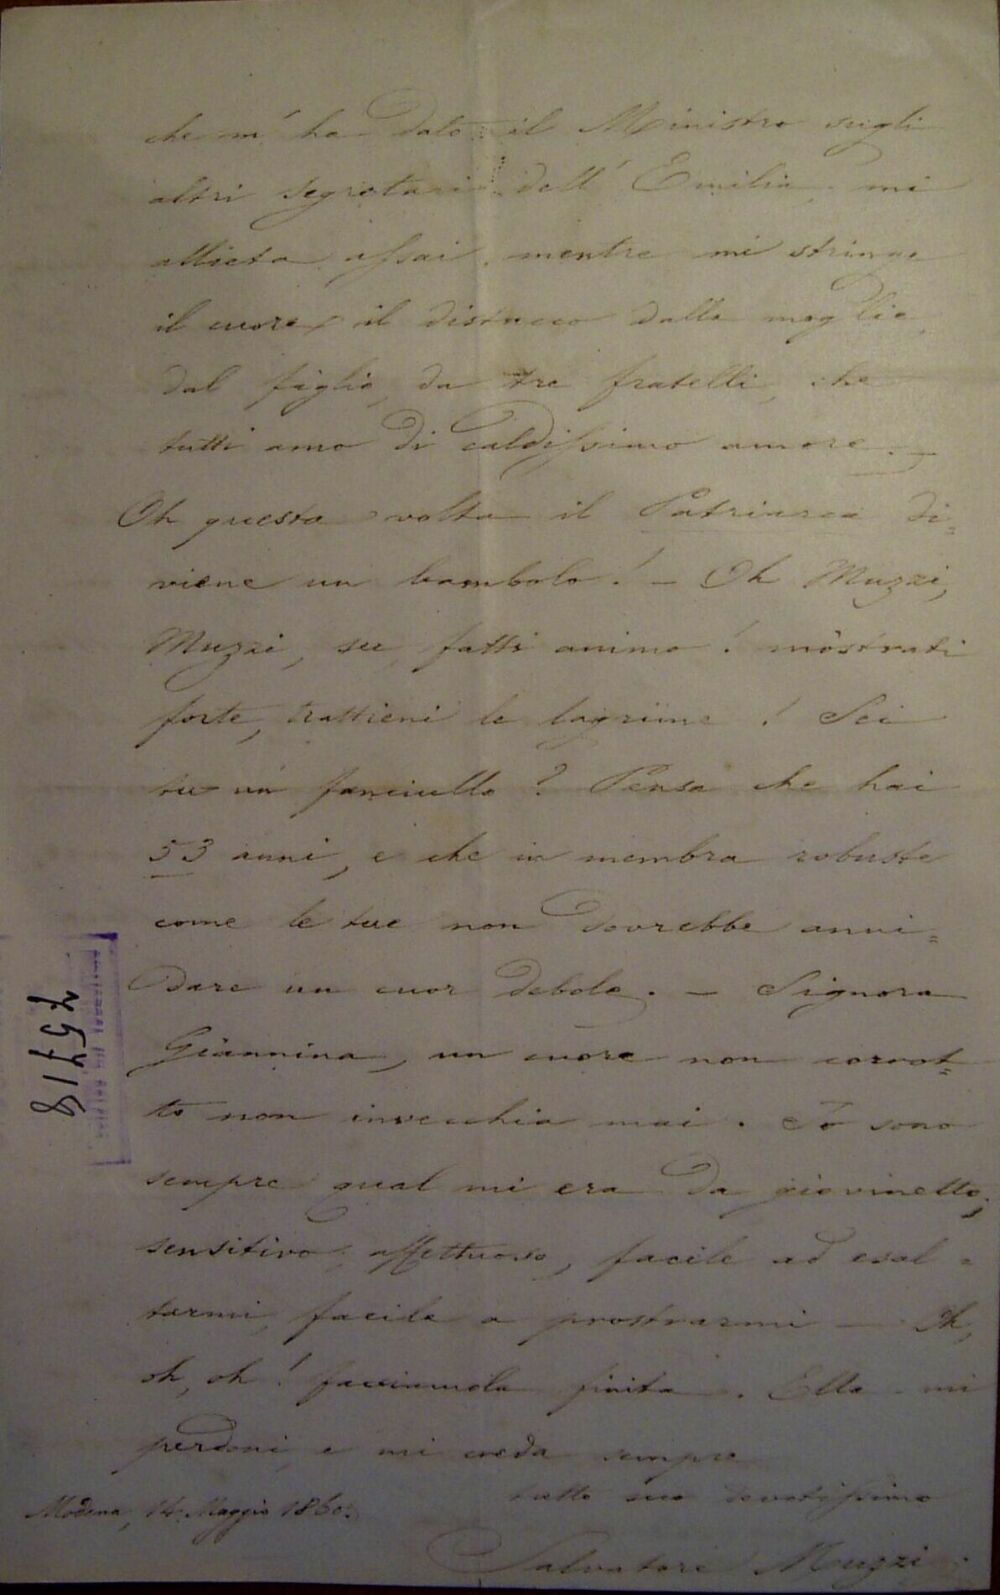 che m'ha dato il Ministro sugli
altri segretari dell'Emilia, mi
allieta assai, mentre mi stringe
il cuore il distacco dalla moglie,
dal figlio, da tre fratelli, che
tutti amo di caldissimo amore. —
Oh questa volta il Patriarca di=
viene un bambolo! — Oh Muzzi,
Muzzi, su, fatti animo! mòstrati
forte, trattieni le lagrime! Sei
tu un fanciullo? Pensa che hai
53 anni, e che in membra robuste
come le tue non dovrebbe anni=
dare un cuor debole. — Signora
Giannina, un cuore non corrot=
to non invecchia mai. Io sono
sempre qual mi era da giovinetto;
sensitivo, affettuoso, facile ad esal=
tarmi, facile a prostrarmi — Oh,
oh, oh! facciamola finita. Ella mi
perdoni e mi creda sempre
tutto suo devotissimo
Modena, 14 Maggio 1860.
Salvatore Muzzi
75718